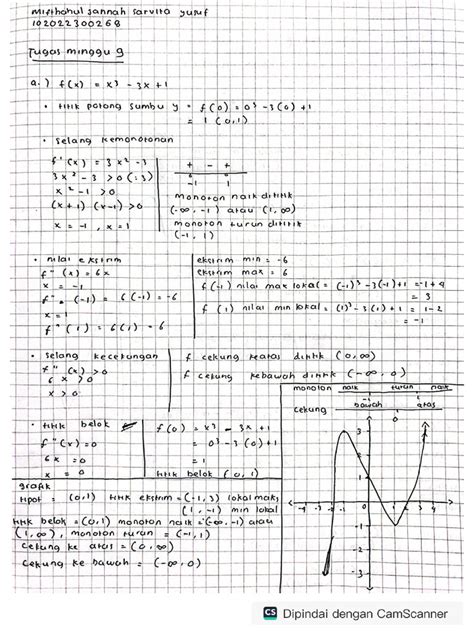 Miftahul Jannah Sarvita Yusuf
102022300268
Tugas minggu 9
a.) f(x) = x³ - 3x + 1
• titik potong sumbu y = f(0) = 0³ - 3(0) + 1
= 1 (0,1)
• Selang kemonotonan
f'(x) = 3x² - 3
3x² - 3 > 0 (:3)
x² - 1 > 0
(x+1) (x-1) > 0
x = -1, x = 1
+ - +
-1 1
monoton naik dititik
(-∞, -1) atau (1, ∞)
monoton turun dititik
(-1, 1)
• nilai ekstrim
f"(x) = 6x
x = -1
f" (-1) = 6(-1) = -6
x = 1
f"(1) = 6(1) = 6
ekstrim min = -6
ekstrim max = 6
f(-1) nilai max lokal = (-1)³ - 3(-1) + 1 = -1 + 4
= 3
f (1) nilai min lokal = (1)³ - 3(1) + 1 = 1 - 2
= -1
• Selang kecekungan
f"(x) > 0
6x > 0
x > 0
f cekung keatas dititik (0, ∞)
f cekung kebawah dititik (-∞, 0)
• titik belok
f"(x) = 0
6x = 0
x = 0
f(0) = x³ - 3x + 1
= 0³ - 3(0) + 1
= 1
titik belok (0, 1)
monoton naik turun naik
-1 1
cekung bawah atas
0
Grafik
tipot = (0,1) titik ekstrim = (-1, 3) lokal maks
(1, -1) min lokal
titik belok = (0,1) monoton naik = (-∞, -1) atau
(1, ∞), monoton turun = (-1, 1)
Cekung ke atas = (0, ∞)
Cekung ke bawah = (-∞, 0)
3
1
-4 -3 -2 -1 0 1 2 3 4
-1
-2
-3
CS Dipindai dengan CamScanner